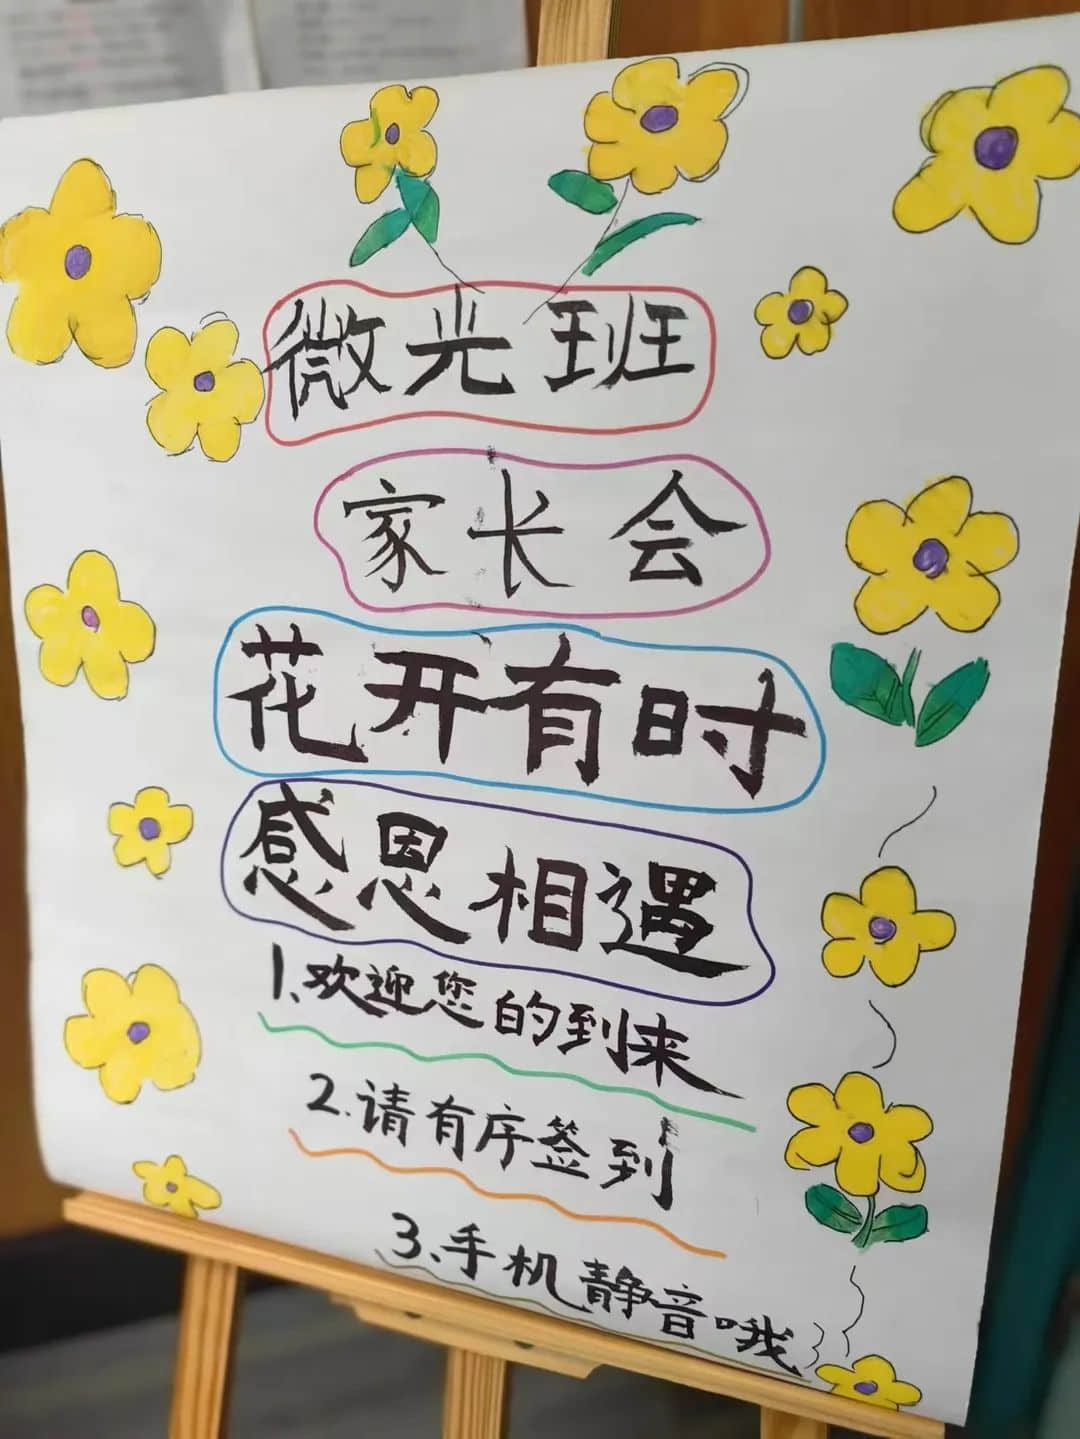 微光班
家长会
花开有时
感恩相遇
1、欢迎您的到来
2.请有序签到
3、手机静音哦